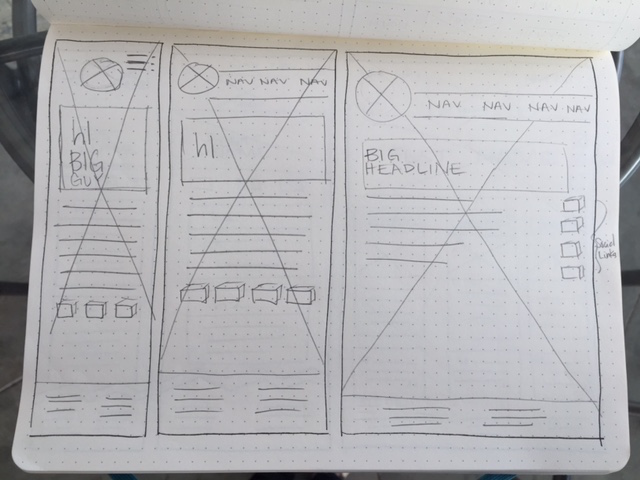 h1
BIG
GUY
NAV NAV NAV
h1
NAV NAV NAV NAV
BIG
HEADLINE
Social
Links